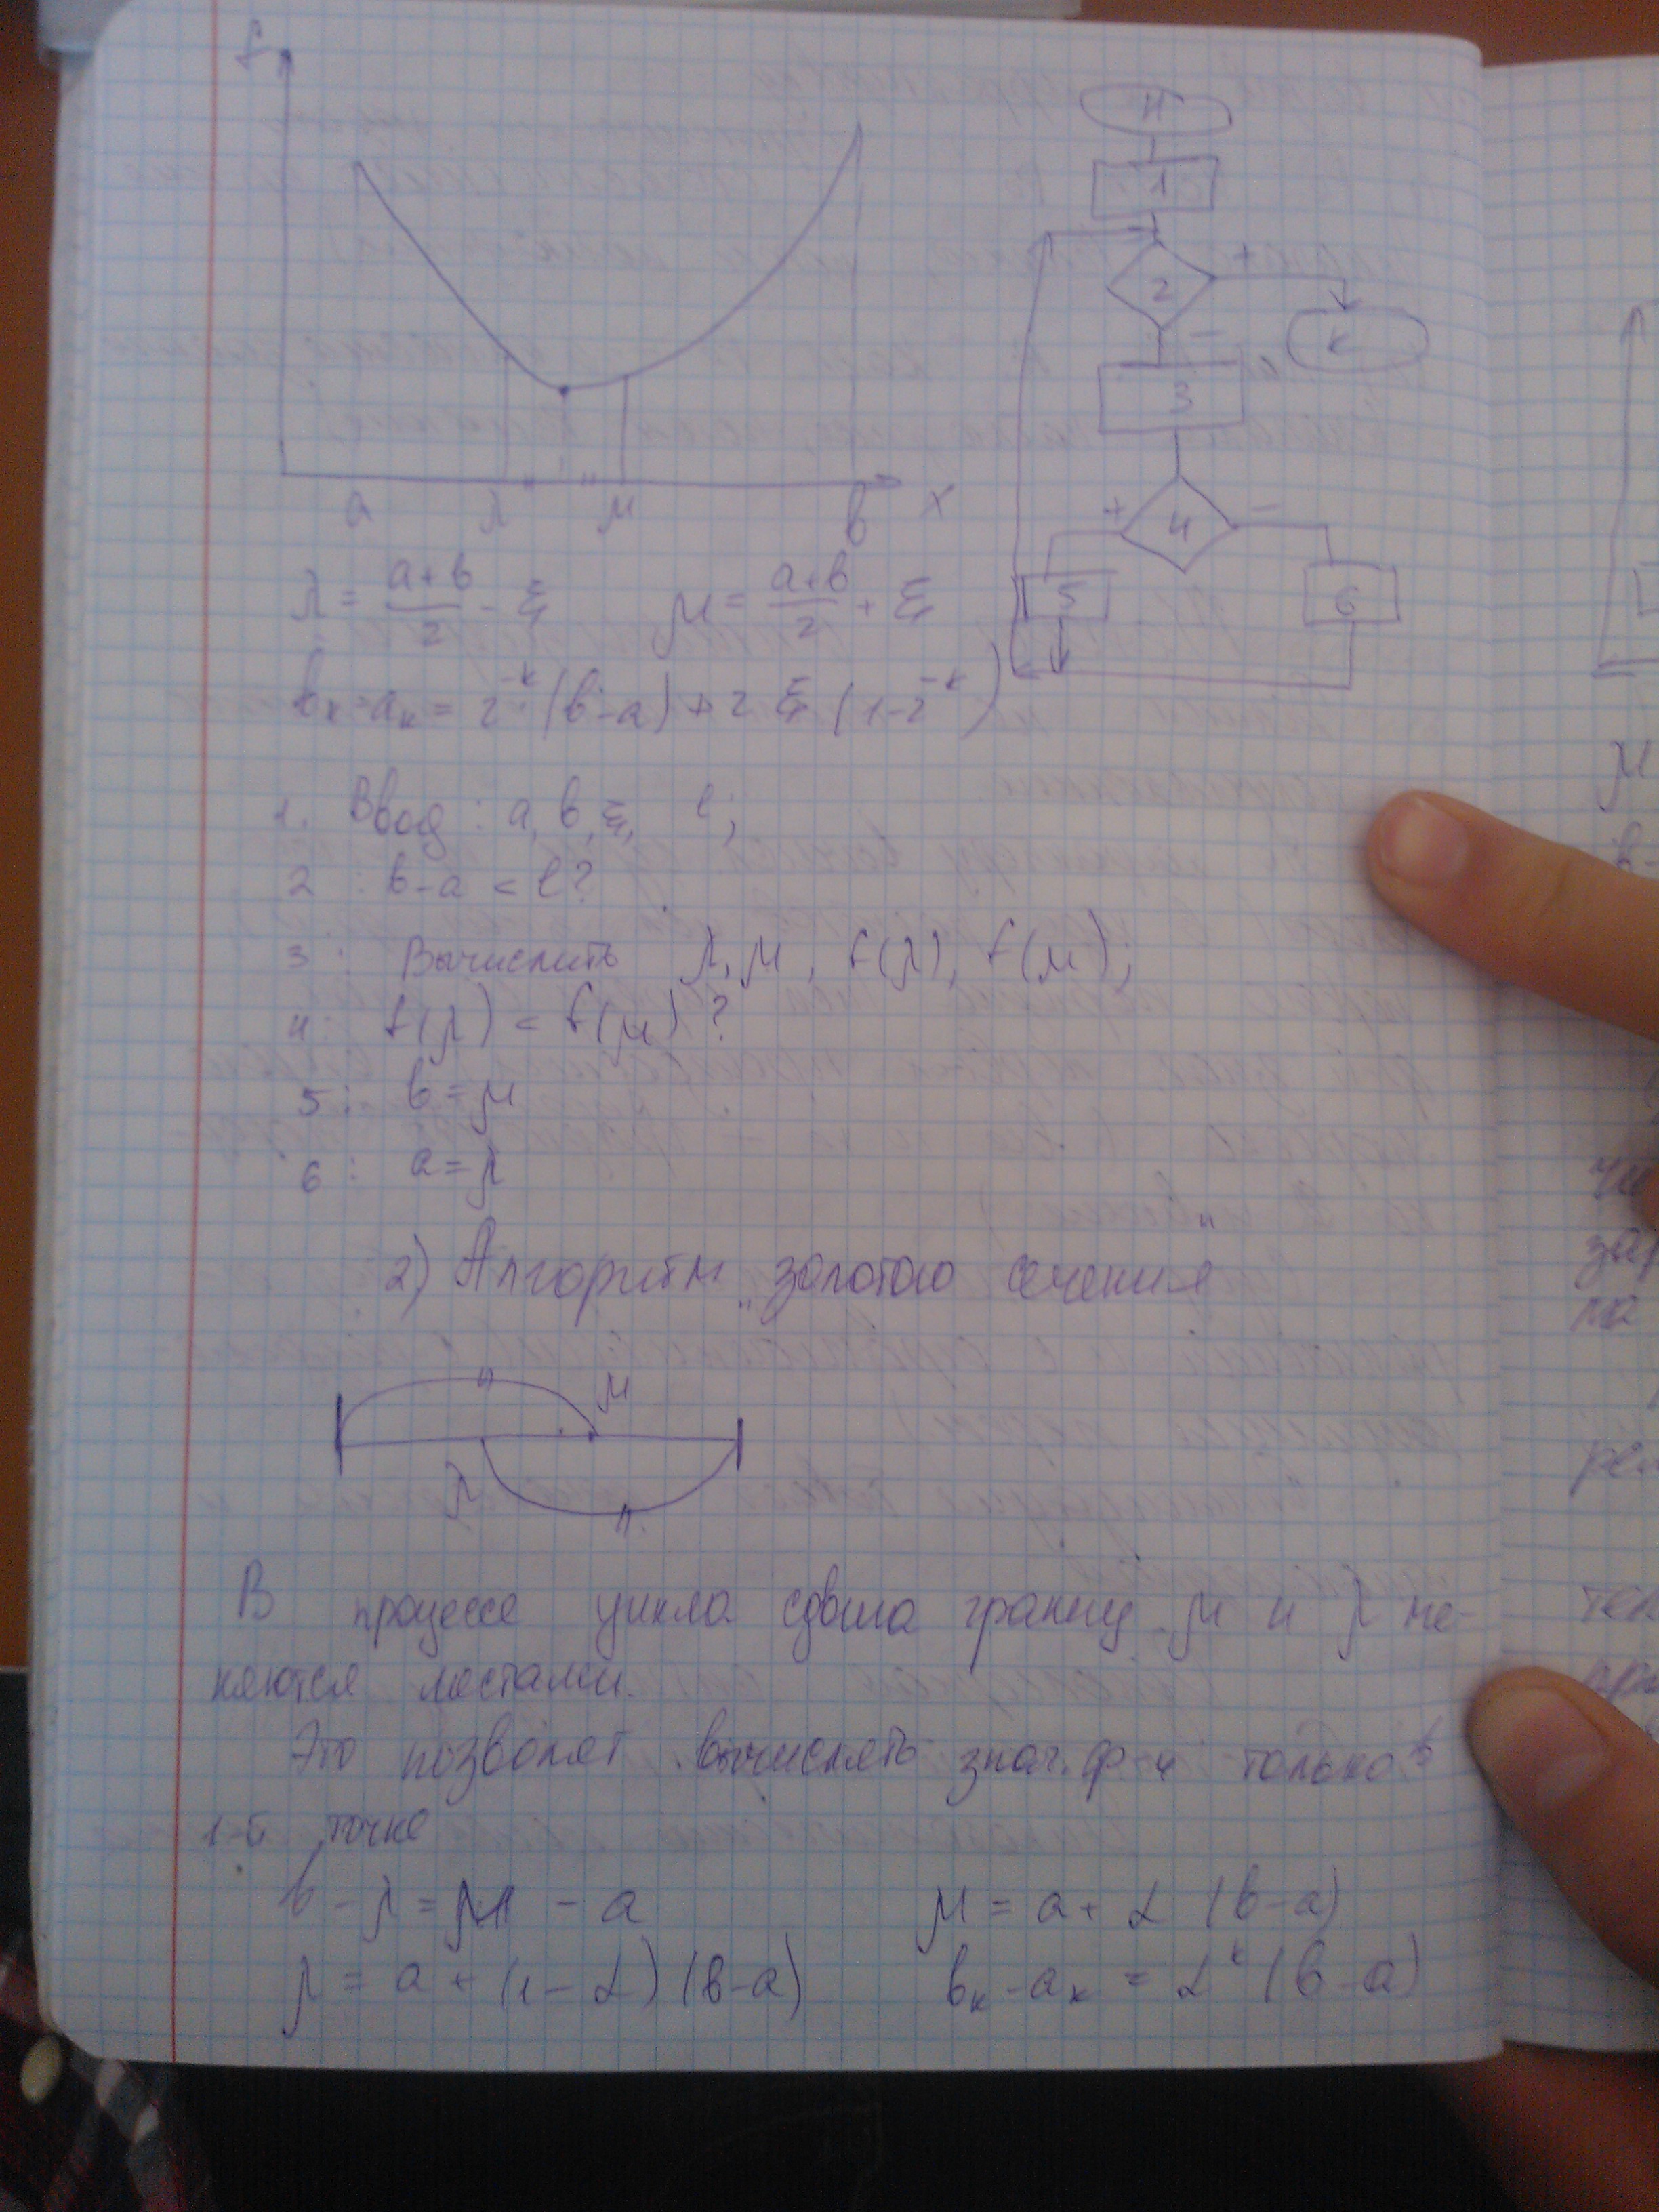 f
a λ μ в x
Н
1
2 +
-
К
3
+ 4 -
5 6
λ = (a+в)/2 - ξ μ = (a+в)/2 + ξ
вₖ - aₖ = 2⁻ᵏ (в-a) + 2 ξ (1-2⁻ᵏ)
1. Ввод: a, в, ξ, l;
2: в-a < l?
3: Вычислить λ, μ, f(λ), f(μ);
4: f(λ) < f(μ)?
5: в = μ
6: a = λ
2) Алгоритм „золотого сечения"
μ
λ
В процессе цикла сдвига границ μ и λ ме-
няются местами.
Это позволяет вычислять знач. ф-и только в
1-й точке
в - λ = μ - a μ = a + α (в-a)
λ = a + (1-α)(в-a) вₖ - aₖ = αᵏ (в-a)